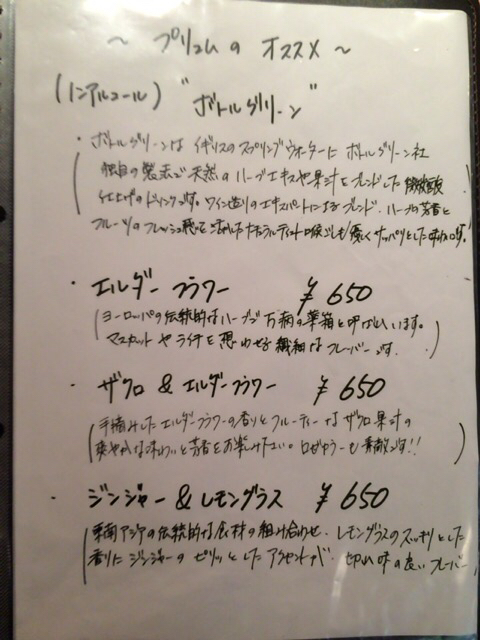 ~ プリュムの オススメ ~
(ノンアルコール) "ボトルグリーン"
・ボトルグリーンは イギリスの スプリングウォーターに ボトルグリーン社
独自の製法で天然の ハーブエキスや果汁をブレンドした 微炭酸
仕上げのドリンクです。ワイン造りのエキスパートによるブレンド。ハーブの芳香と
フルーツのフレッシュ感を活かしたナチュラルテイスト 喉ごしも優しくサッパリとした味わいです。
・エルダーフラワー ¥650
(ヨーロッパの伝統的なハーブで万病の薬箱と呼ばれています。
マスカットやライチを想わせる繊細なフレーバーです。)
・ザクロ & エルダーフラワー ¥650
(手摘みしたエルダーフラワーの香りとフルーティーなザクロ果汁の
爽やかな味わいと芳香をお楽しみ下さい。ロゼカラーも素敵です!!)
・ジンジャー & レモングラス ¥650
(東南アジアの伝統的な食材の組み合わせ。レモングラスのスッキリとした
香りにジンジャーのピリッとしたアクセントが、切れ味の良いフレーバー)